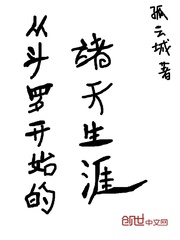 孤云城 著
诸天生涯
从斗罗开始的
创世中文网